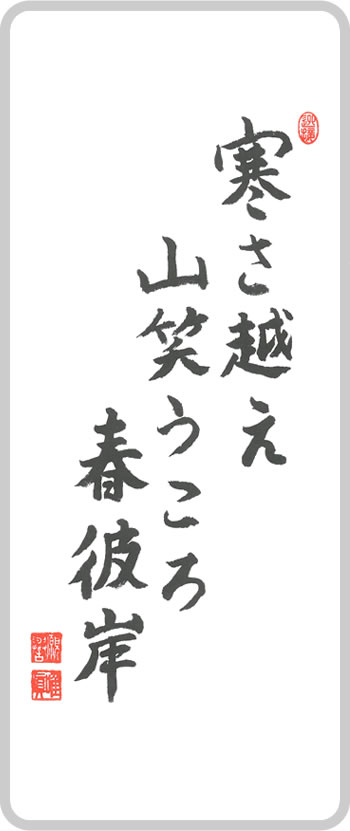 寒さ越え
山笑うころ
春彼岸